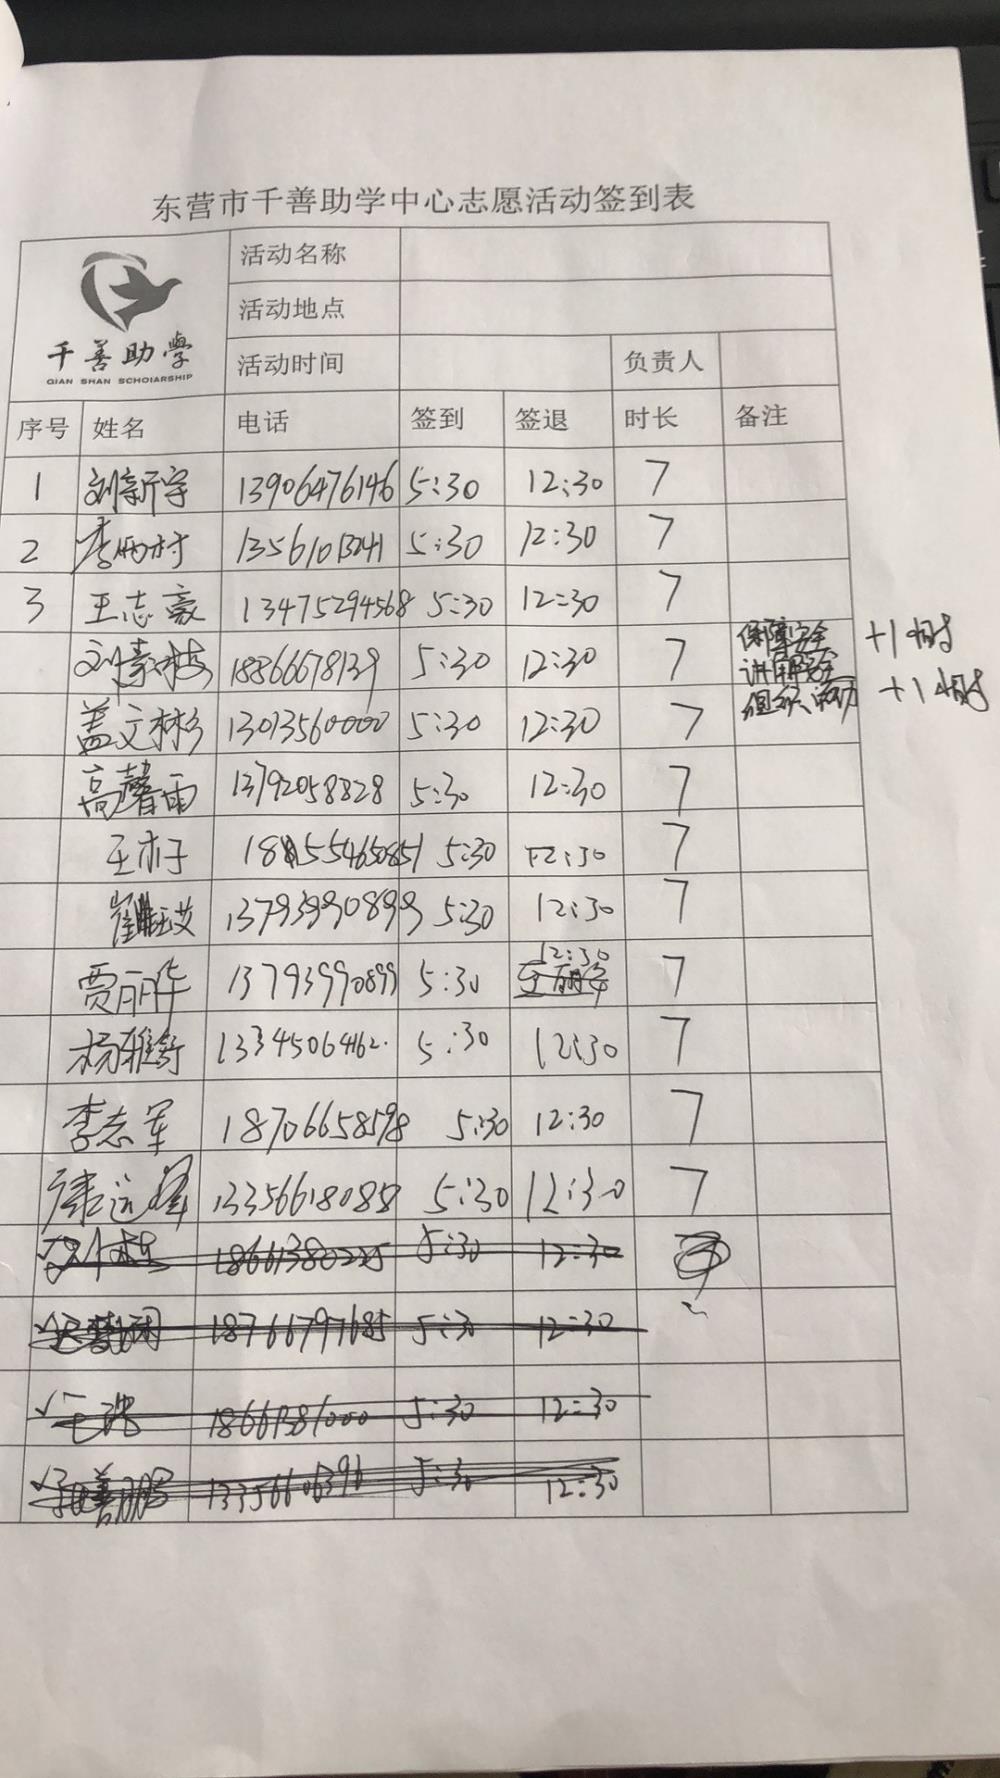 东营市千善助学中心志愿活动签到表
千善助学
QIAN SHAN SCHOLARSHIP
活动名称
活动地点
活动时间 负责人
序号 姓名 电话 签到 签退 时长 备注
1 刘新宇 13906476146 5:30 12:30 7
2 李雨村 13561013241 5:30 12:30 7
3 王志豪 13475294568 5:30 12:30 7
刘素梅 18866678139 5:30 12:30 7 保障安全 +1小时
讲解安全
盖文彬 13013560000 5:30 12:30 7 组织活动 +1小时
高馨雨 13792058828 5:30 12:30 7
王木子 5:30 12:30 7
13793990899 5:30 12:30 7
贾丽华 13793990899 5:30 12:30 7
杨雅舒 13345064162 5:30 12:30 7
李志军 18706658598 5:30 12:30 7
康远泽 13356618088 5:30 12:30 7
18661380225 5:30 12:30
18766797685 5:30 12:30
18661381000 5:30 12:30
5:30 12:30